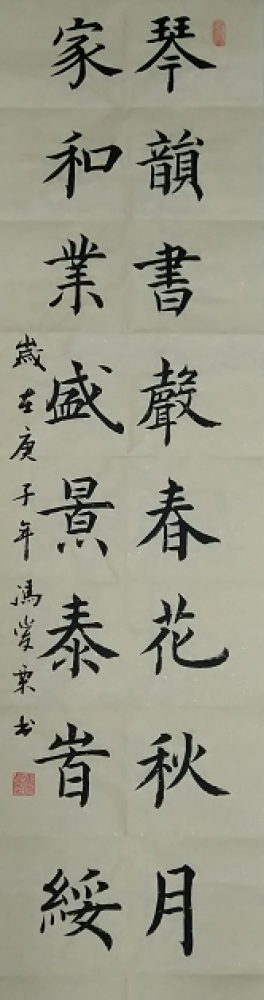 琴韻書聲春花秋月
家和業盛景泰旹綏
歲在庚子年馮愛東書